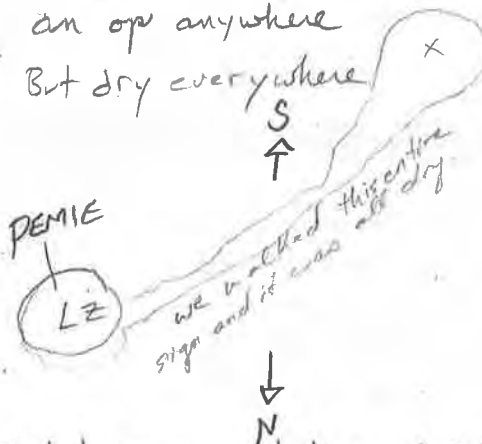 an op anywhere
But dry everywhere
S
X
PEMIE
LZ
we walked this entire
sign and it was all dry.
N